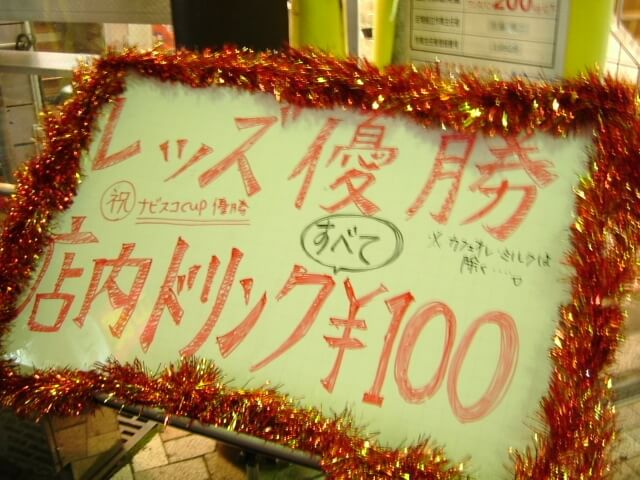 200
レッズ優勝
祝 ナビスコcup 優勝
すべて
※カフェオレ・ミルクは
除く……。
店内ドリンク¥100